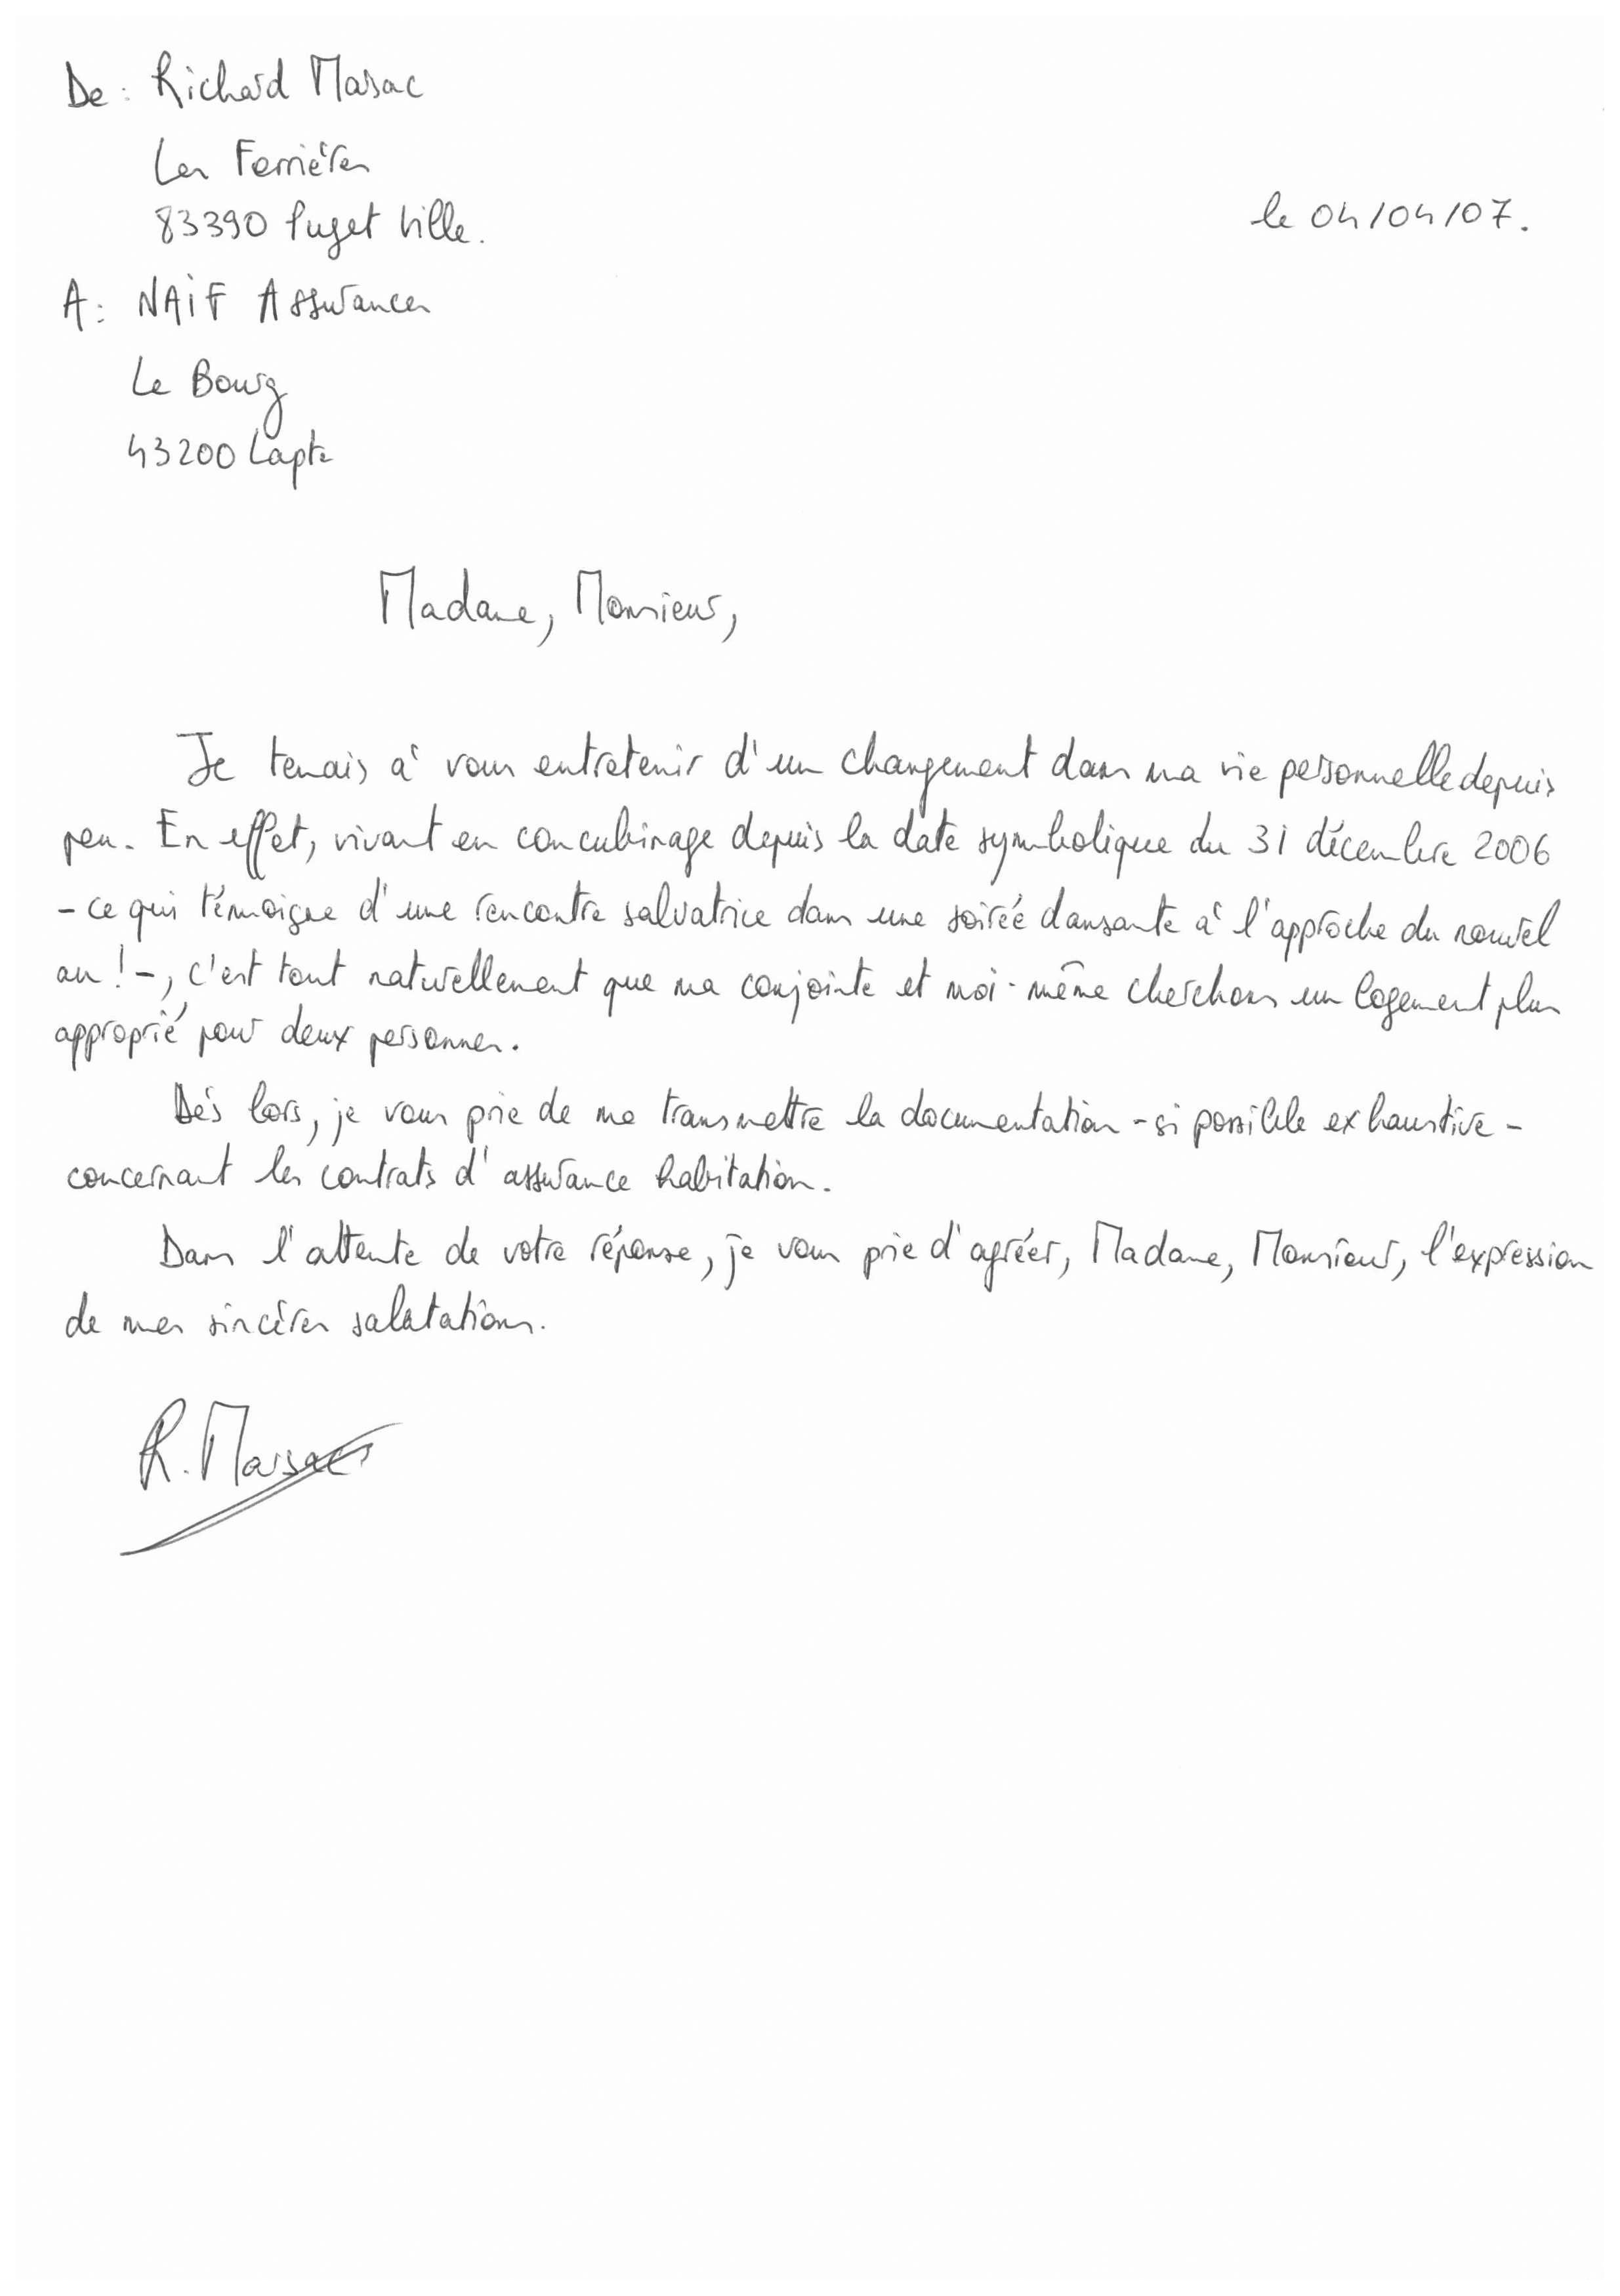 De : Richard Marsac
Les Ferrières
83390 Puget Ville.
le 04/04/07.
A : NAiF Assurances
Le Bourg
43200 Lapte
Madame, Monsieur,
Je tenais à vous entretenir d'un changement dans ma vie personnelle depuis
peu. En effet, vivant en concubinage depuis la date symbolique du 31 décembre 2006
- ce qui témoigne d'une rencontre salvatrice dans une soirée dansante à l'approche du nouvel
an ! -, c'est tout naturellement que ma conjointe et moi-même cherchons un logement plus
approprié pour deux personnes.
Dès lors, je vous prie de me transmettre la documentation - si possible exhaustive -
concernant les contrats d'assurance habitation.
Dans l'attente de votre réponse, je vous prie d'agréer, Madame, Monsieur, l'expression
de mes sincères salutations.
R. Marsac